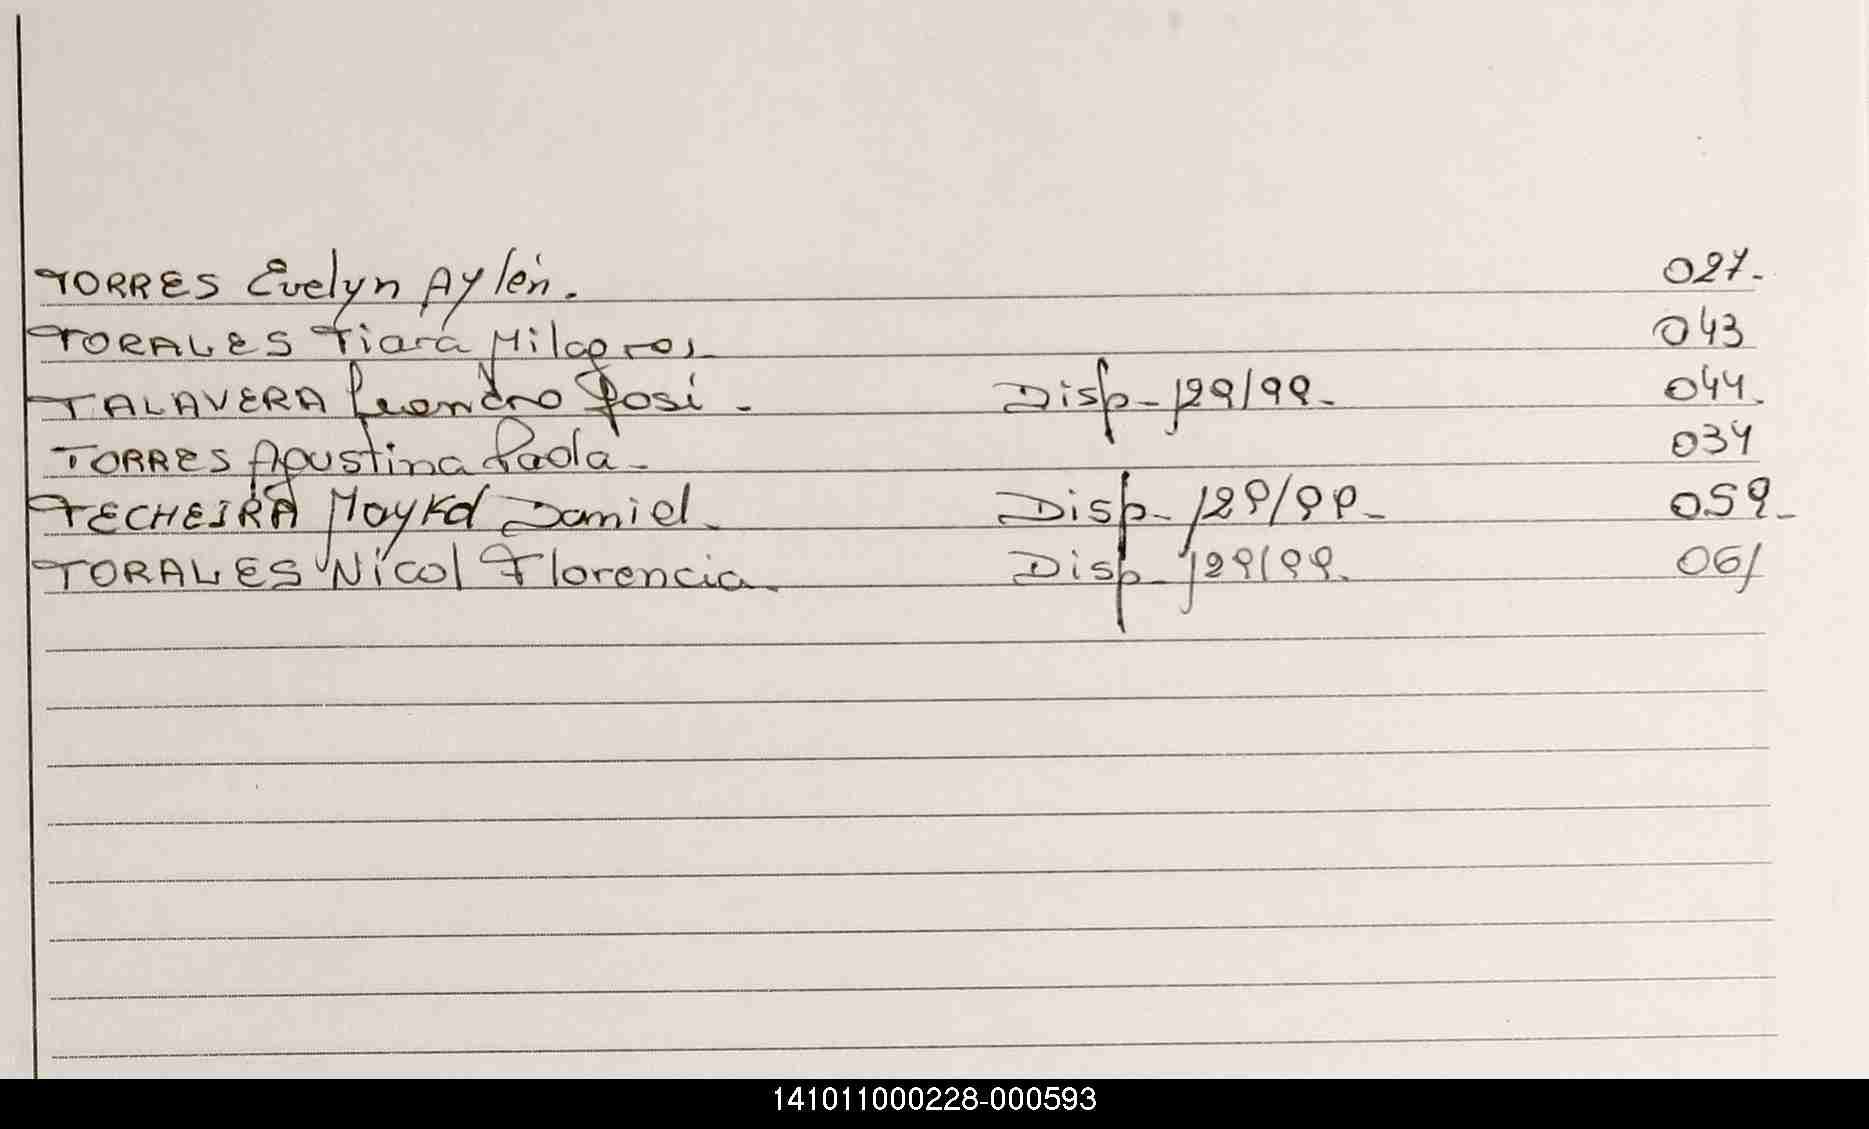 TORRES Evelyn Aylén. 027.
TORALES Tiara Milagros 043
TALAVERA Leandro José. Disp- 129/99. 044.
TORRES Agustina Paola. 034
TECHEIRA Maykel Daniel. Disp- 129/99. 059.
TORALES Nicol Florencia. Disp- 129/99. 061
141011000228-000593